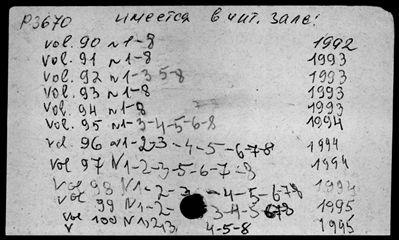 P3670 имеется в чит. зале:
vol. 90 N 1-8 1992
vol. 91 N 1-8 1993
vol. 92 N 1-3 5-8 1993
vol. 93 N 1-8 1993
vol. 94 N 1-8 1993
vol. 95 N 1-3-4-5-6-8 1994
vol. 96 N 1-2-3-4-5-6-7-8 1994
vol 97 N 1-2-3-5-6-7-8 1994
vol 98 N 1-2-3-4-5-6-7-8 1994
vol 99 N 1-2-3-4-5-6-7-8 1995
vol 100 N 1,2,3, 4-5-8 1995